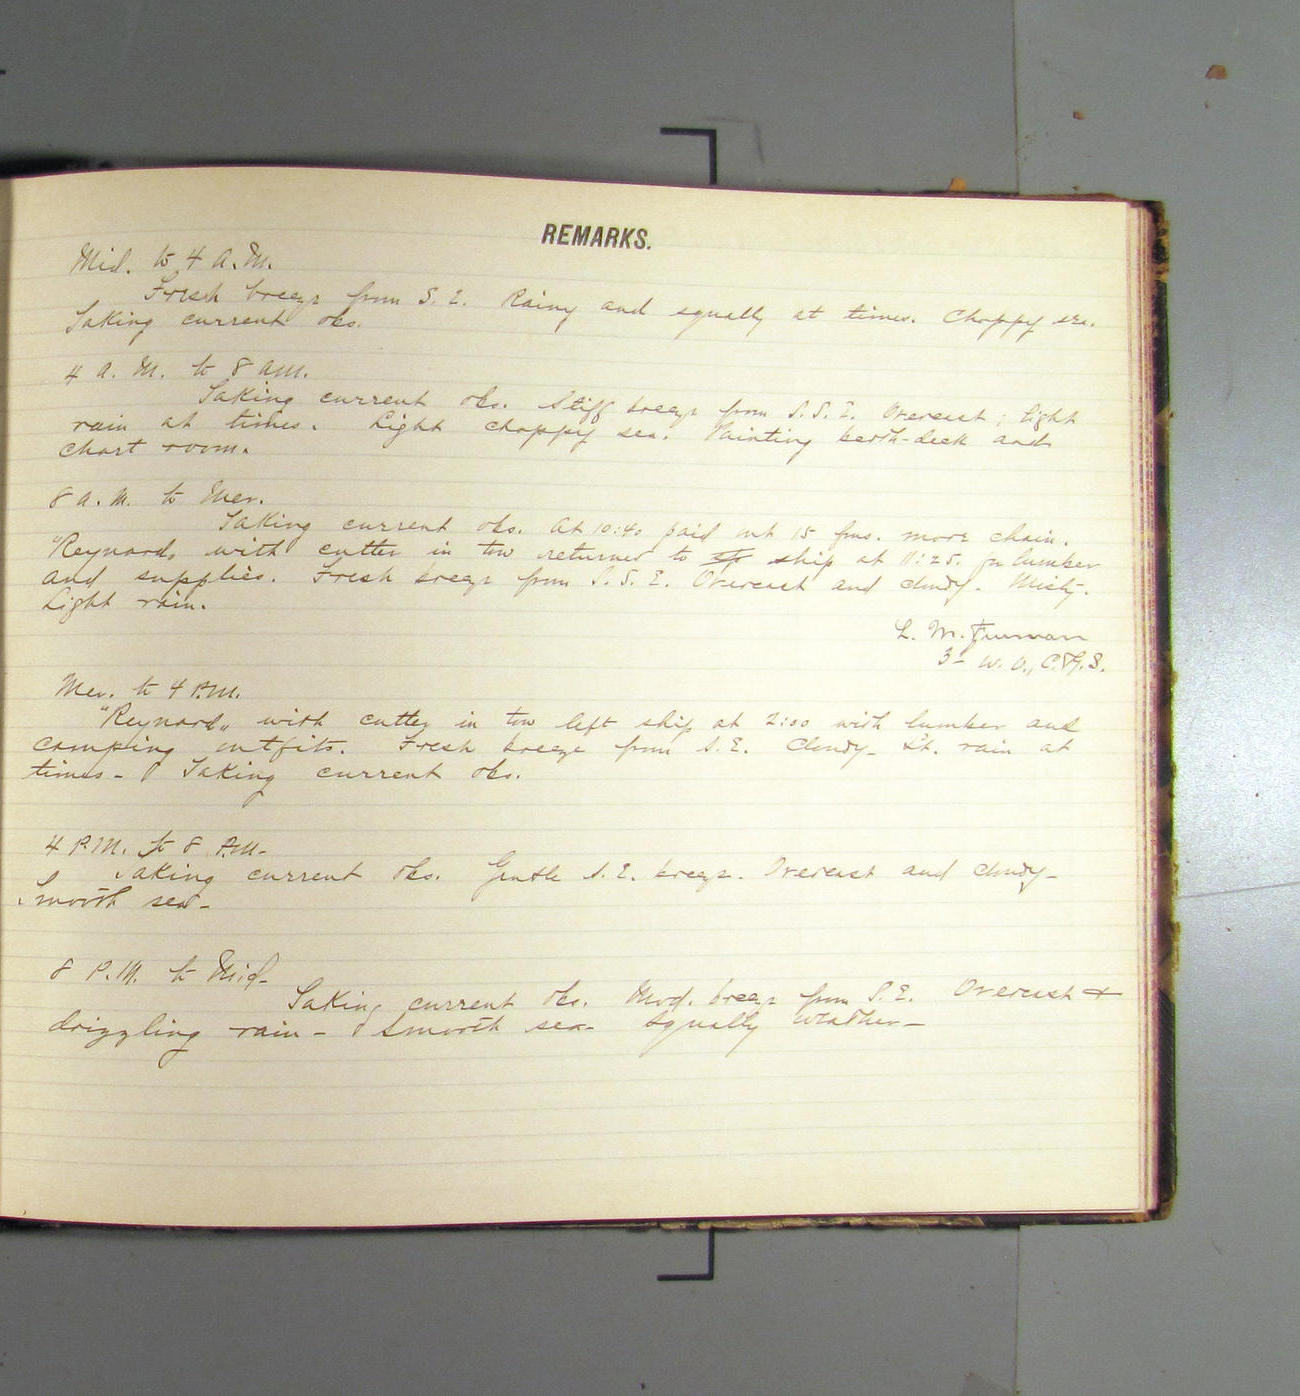 REMARKS.
Mid. to 4 A.M.
Fresh breeze from S.E. Rainy and squally at times. Choppy sea.
Taking current obs.
4 A.M. to 8 A.M.
Taking current obs. Stiff breeze from S.S.E. Overcast; light
rain at times. Light choppy sea. Painting berth-deck and
chart room.
8 a.m. to Mer.
Taking current obs. At 10:40 paid out 15 fms. more chain.
"Reynard" with cutter in tow returned to ship at 11:25. for lumber
and supplies. Fresh breeze from S.S.E. Overcast and cloudy. Misty.
Light rain.
L. M. Furman
3- W.O., C.&G.S.
Mer. to 4 P.M.
"Reynard" with cutter in tow left ship at 2:00 with lumber and
camping outfits. Fresh breeze from S.E. Cloudy- Lt. rain at
times- Taking current obs.
4 P.M. to 8 P.M-
Taking current obs. Gentle S.E. breeze. Overcast and cloudy-
Smooth sea-
8 P.M. to Mid-
Taking current obs. Mod. breeze from S.E. Overcast +
drizzling rain- Smooth sea- Squally weather-